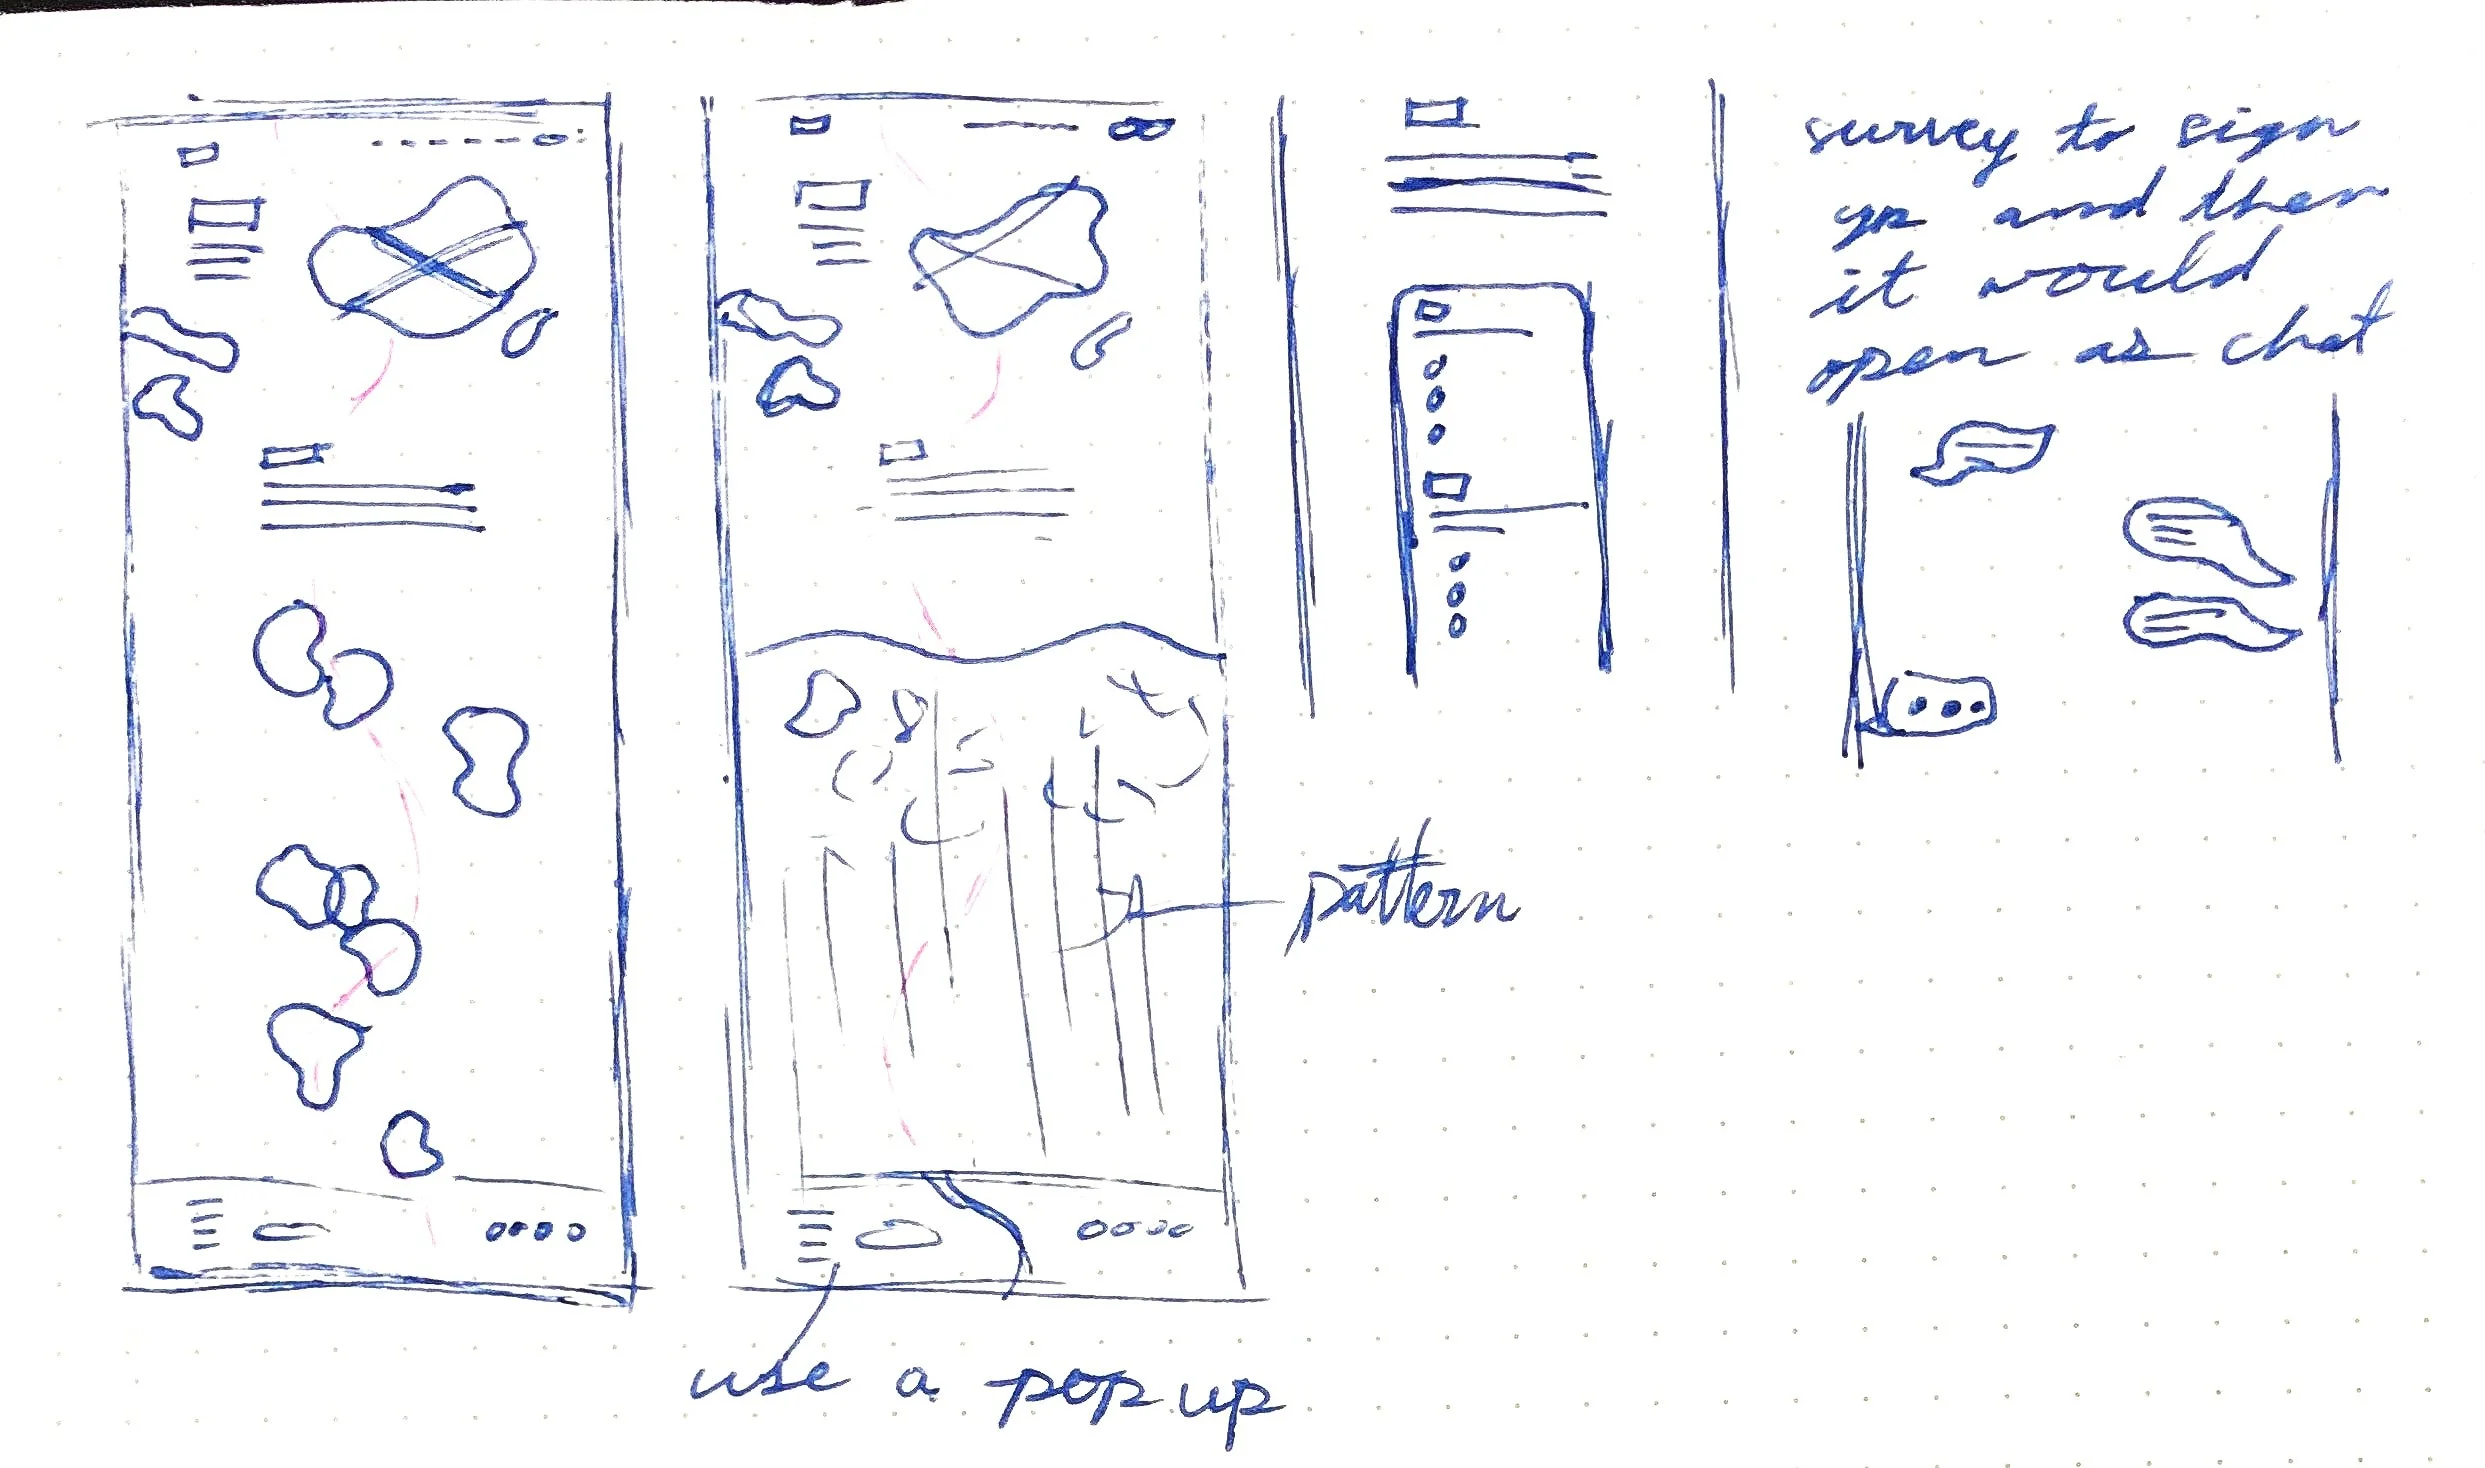 survey to sign
up and then
it would
open as chat
pattern
use a pop up